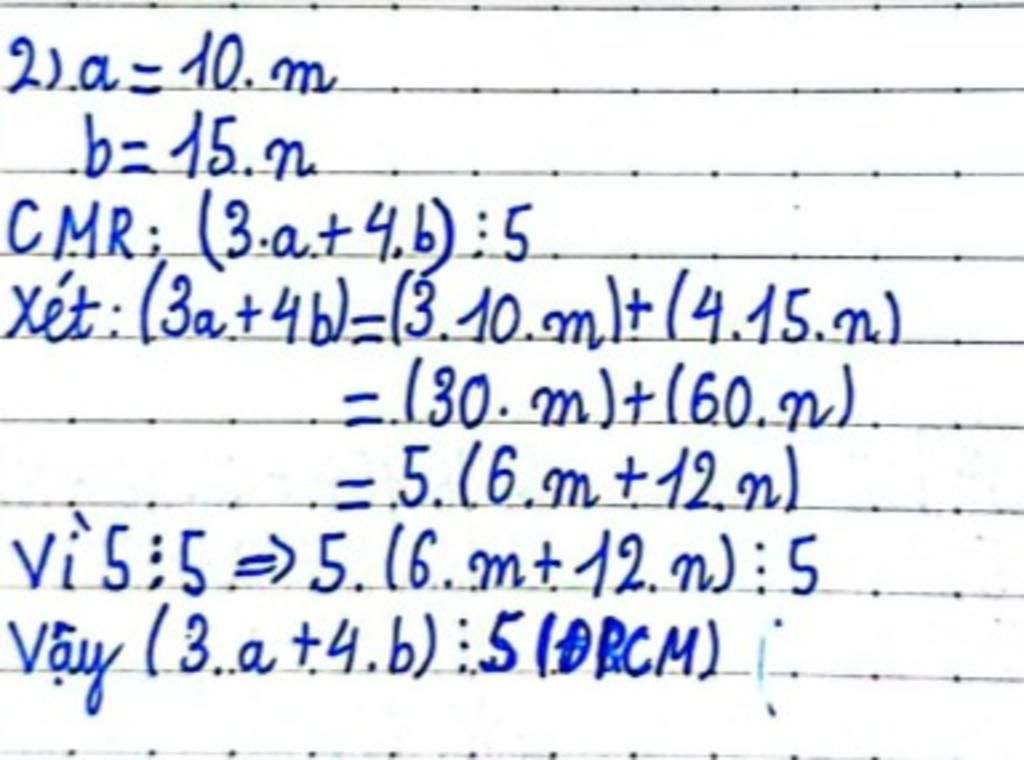 2) a = 10. m
b = 15. n
CMR: (3.a + 4.b) ⋮ 5
Xét: (3a + 4b) = (3.10.m) + (4.15.n)
= (30. m) + (60. n)
= 5. (6. m + 12. n)
Vì 5 ⋮ 5 ⇒ 5. (6. m + 12. n) ⋮ 5
Vậy (3. a + 4. b) ⋮ 5 (ĐPCM)